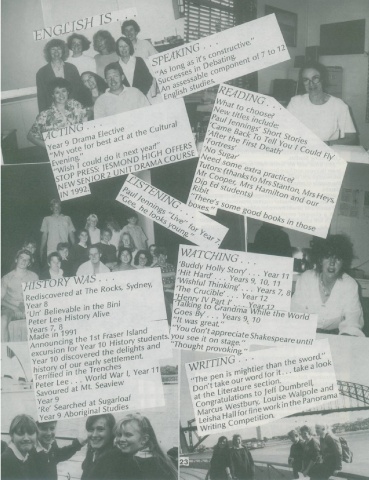 ENGLISH IS . . .
SPEAKING . . .
"As Long as it's constructive."
Successes in Debating.
An assessable component of 7 to 12
English studies.
READING . . .
What to choose!
New titles include:
Paul Jennings' Short Stories
'Came Back To Tell You I Could Fly'
'After the First Death'
'Fortress'
'No Sugar'
Need some extra practice?
Tutors (thanks to Mrs Stanton, Mrs Heys,
Mr Cooper, Mrs Hamilton and our
Dip Ed students)
Ribit
"There's some good books in those
boxes."
ACTING . . .
Year 9 Drama Elective
"My vote for best act at the Cultural
Evening."
"Wish I could do it next year"
STOP PRESS: JESMOND HIGH OFFERS
NEW SENIOR 2 UNIT DRAMA COURSE
IN 1992.
LISTENING . . .
Paul Jennings "Live" for Year 7
"Gee, he looks young."
WATCHING . . .
'Buddy Holly Story' . . . Year 11
'Hit Hard' . . . Years 9, 10, 11
'Wishful Thinking' . . . Years 7, 8
'The Crucible' . . . Year 12
'Henry IV Part I' . . . Year 12
'Talking to Grandma While the World
Goes By' . . . Years 9, 10
"It was great."
"You don't appreciate Shakespeare until
you see it on stage."
"Thought provoking."
HISTORY WAS . . .
Rediscovered at The Rocks, Sydney,
Year 8
'Un' Believable in the Bin!
Peter Lee History Alive
Years 7, 8
Made in 1991
Announcing the 1st Fraser Island
excursion for Year 10 History students.
Year 10 discovered the delights and
history of our early settlement.
Terrified in the Trenches
Peter Lee . . . World War I, Year 11
Savoured at Mt. Seaview
Year 9
'Re' Searched at Sugarloaf
Year 9 Aboriginal Studies
WRITING . . .
"The pen is mightier than the sword."
Don't take our word for it . . . take a look
at the Literature section.
Congratulations to Jell Dumbrell,
Marcus Westbury, Louise Walpole and
Leisha Hall for line work in the Panorama
Writing Competition.
23